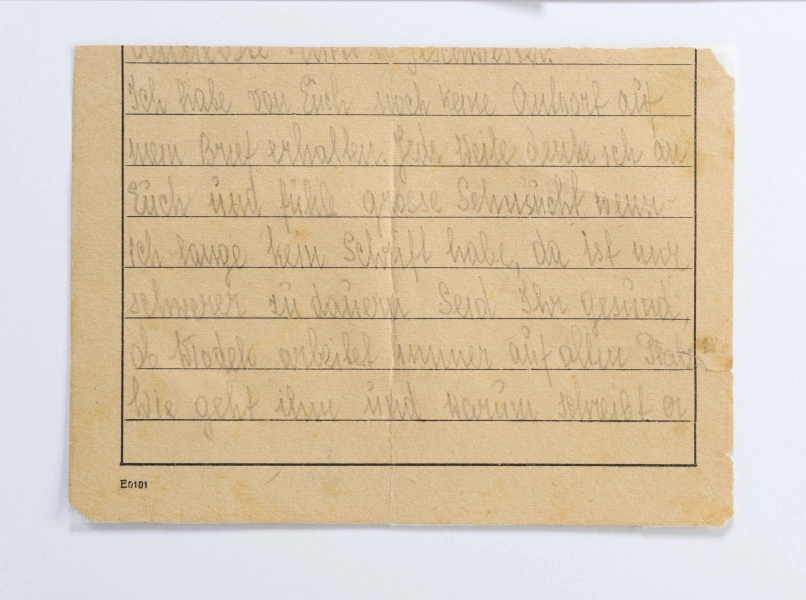 Geschwister.
Ich habe von Euch noch keine Antwort auf
mein Brief erhalten. Jede Weile denke ich an
Euch und fühle grosse Sehnsucht wenn
ich lange kein Schrift habe, da ist mir
schwerer zu dauern Seid Ihr gesund,
ob Wladek arbeitet immer auf alten Platz
Wie geht ihm und warum schreibt er
E0101